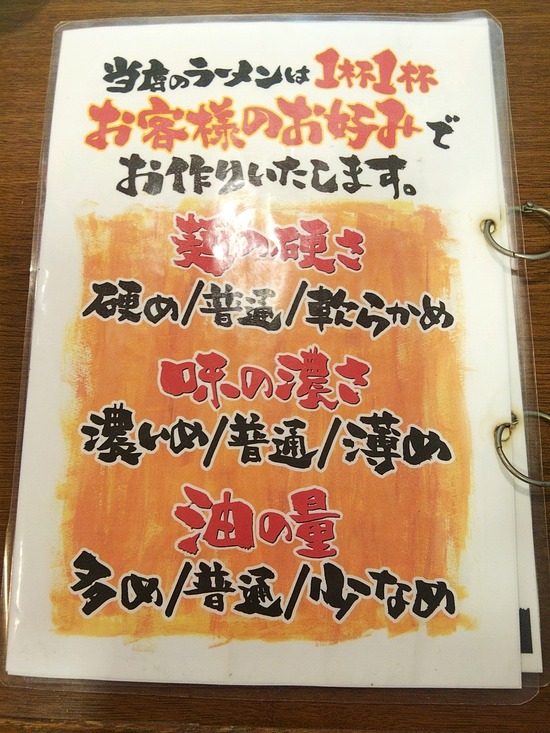 当店のラーメンは1杯1杯
お客様のお好みで
お作りいたします。
麺の硬さ
硬め/普通/軟らかめ
味の濃さ
濃いめ/普通/薄め
油の量
多め/普通/少なめ